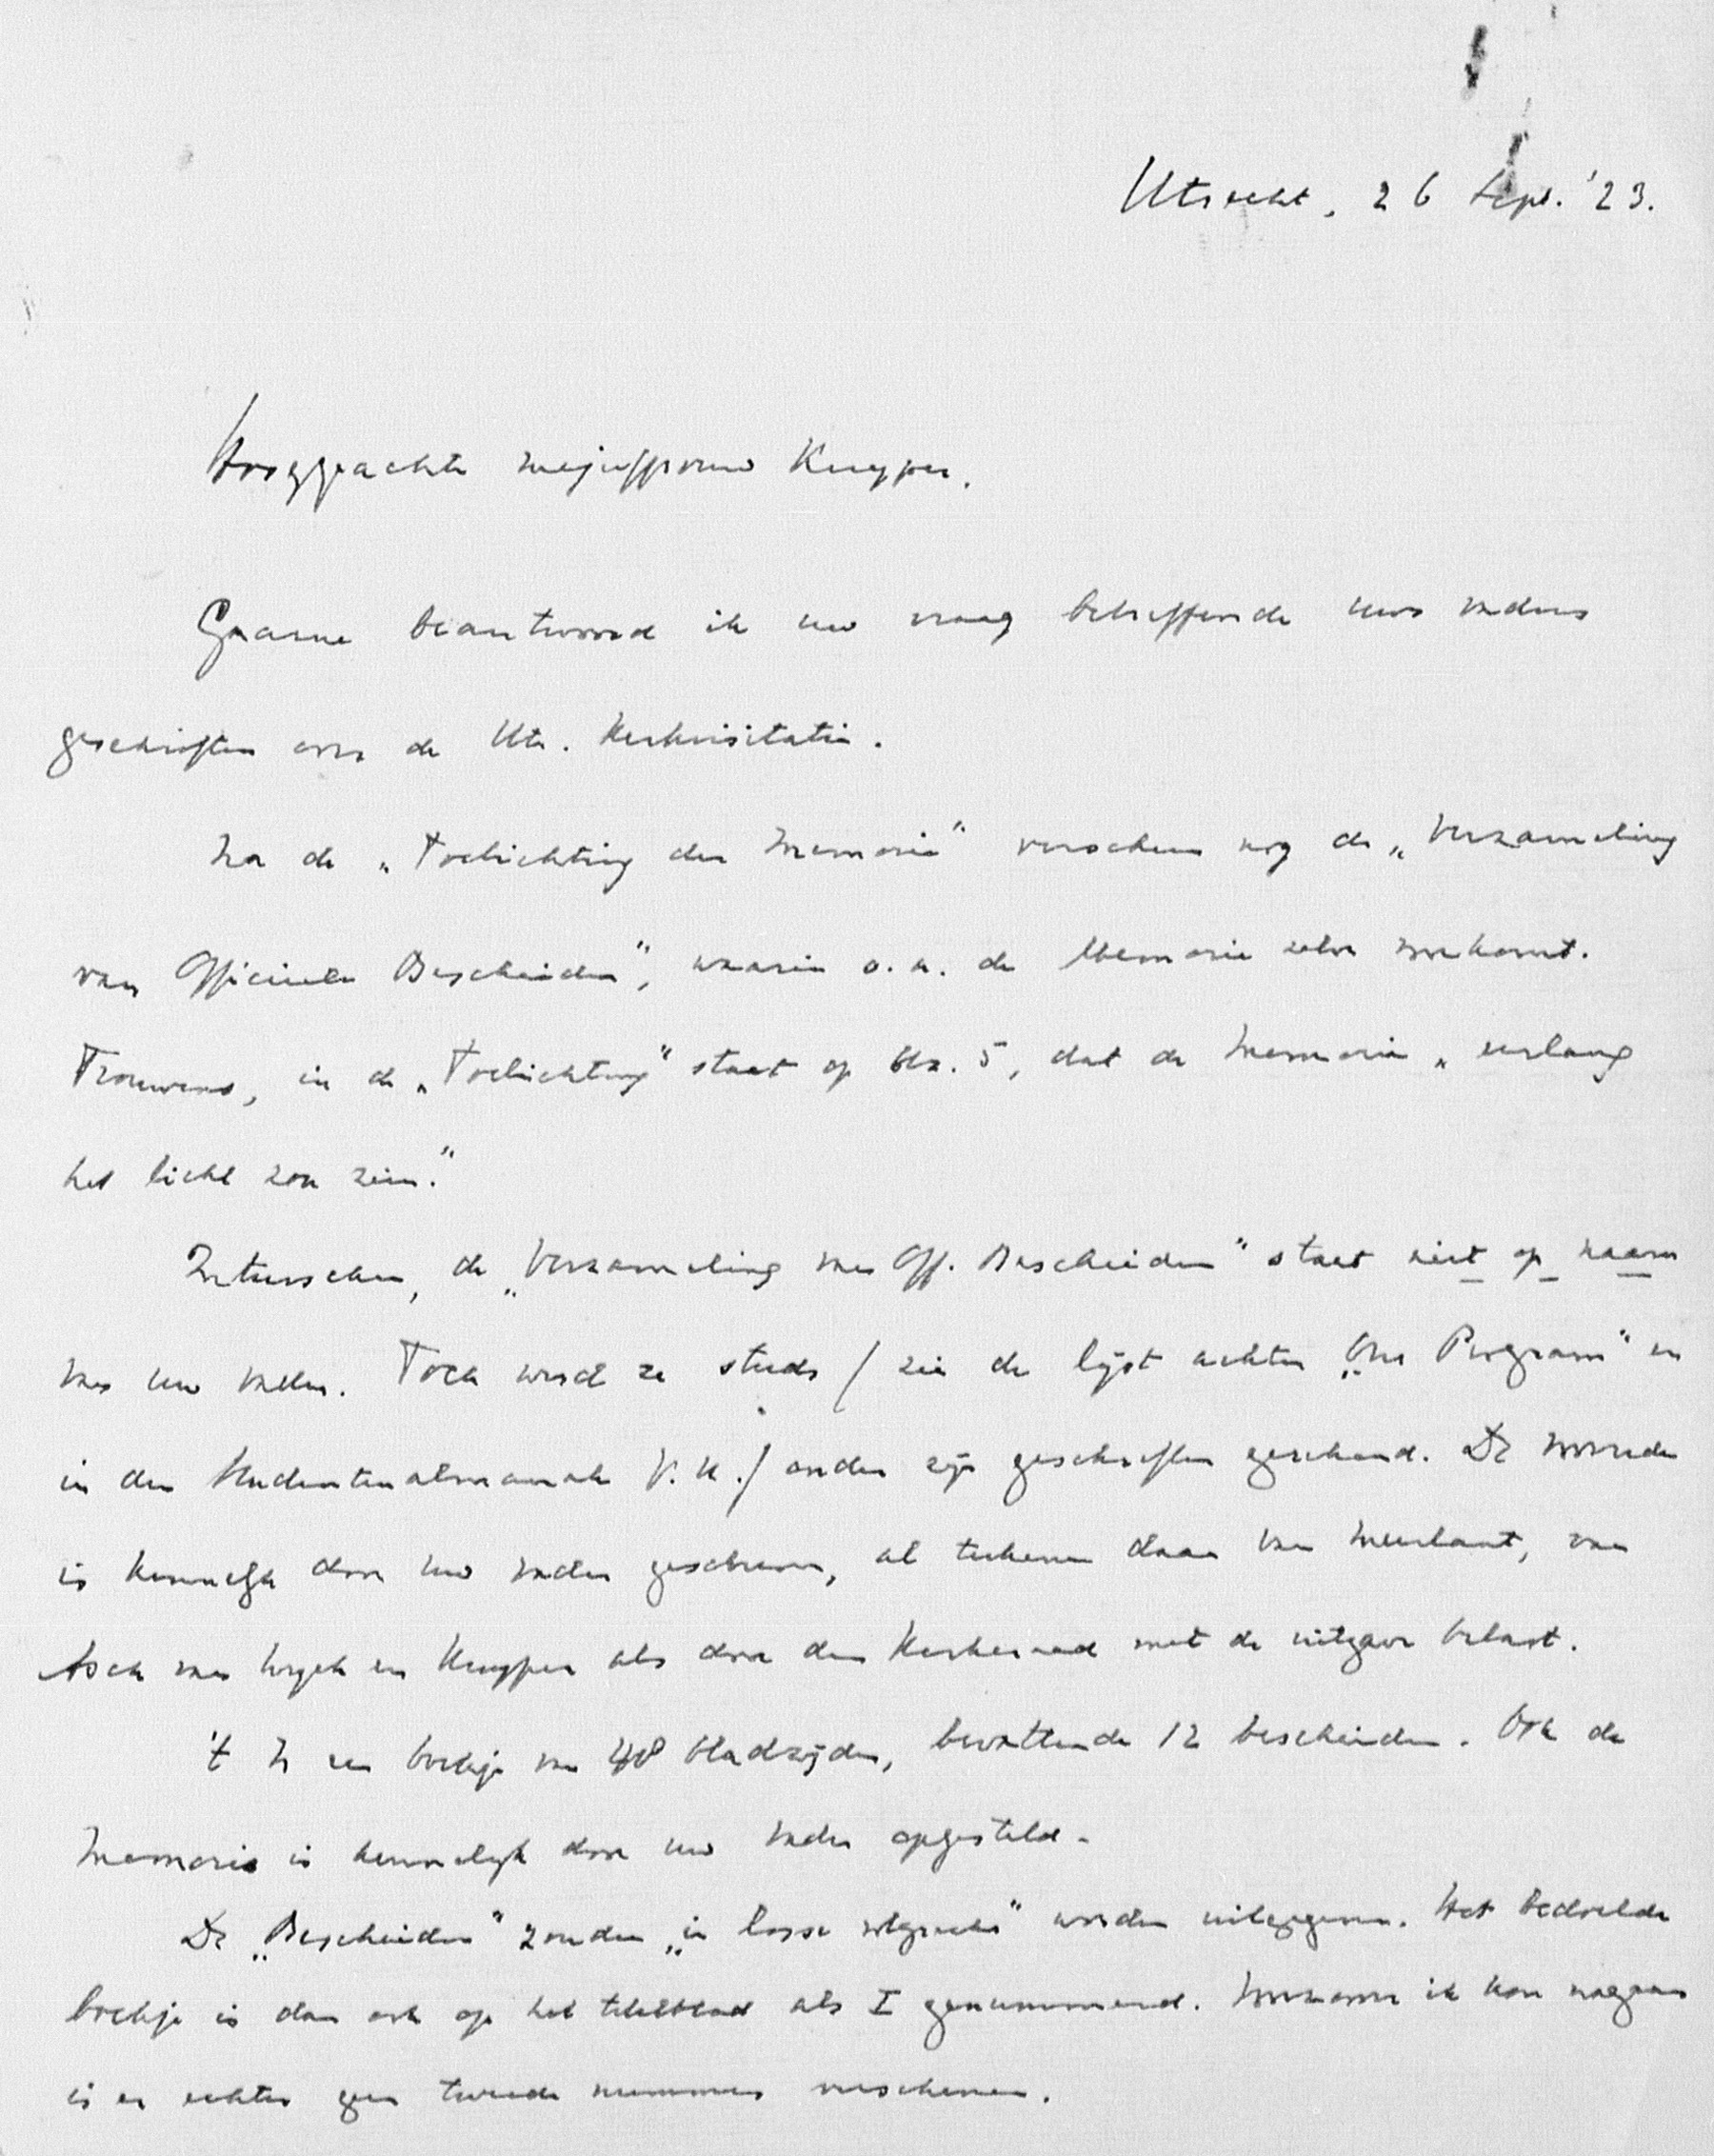 Utrecht, 26 Sept. '23.
Hooggeachte mejuffrouw Kuyper.
Gaarne beantwoord ik uw vraag betreffende uws vaders
geschriften over de Utr. Kerkvisitatie.
Na de „Toelichting der Memorie" verscheen nog de „Verzameling
van Officieele Bescheiden", waarin o.a. de Memorie zelve voorkomt.
Trouwens, in de „Toelichting" staat op blz. 5, dat de Memorie „eerlang
het licht zou zien."
Intusschen, de „Verzameling van Off. Bescheiden" staat niet op naam
van uw vader. Toch werd ze steeds (zie de lijst achter „Ons Program" en
in den Studentenalmanak V.U.) onder zijn geschriften gerekend. De voorrede
is kennelijk door uw vader geschreven, al teekenen daar van Meerlant, van
Asch van Wijck en Kuyper als door den Kerkeraad met de uitgave belast.
't Is een boekje van 48 bladzijden, bevattende 12 bescheiden. Ook de
Memorie is kennelijk door uw vader opgesteld.
De „Bescheiden" zouden „in losse volgreeks" worden uitgegeven. Het bedoelde
boekje is dan ook op het titelblad als I genummerd. Voorzoover ik kon nagaan
is er echter geen tweede nummer verschenen.